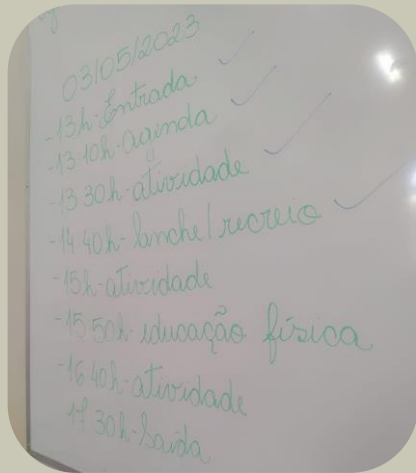 03/05/2023
-13h-Entrada
-13 10h-agenda
-13 30h-atividade
-14 40h-lanche/recreio
-15h-atividade
-15 50h-educação física
-16 40h-atividade
17 30h-Saída